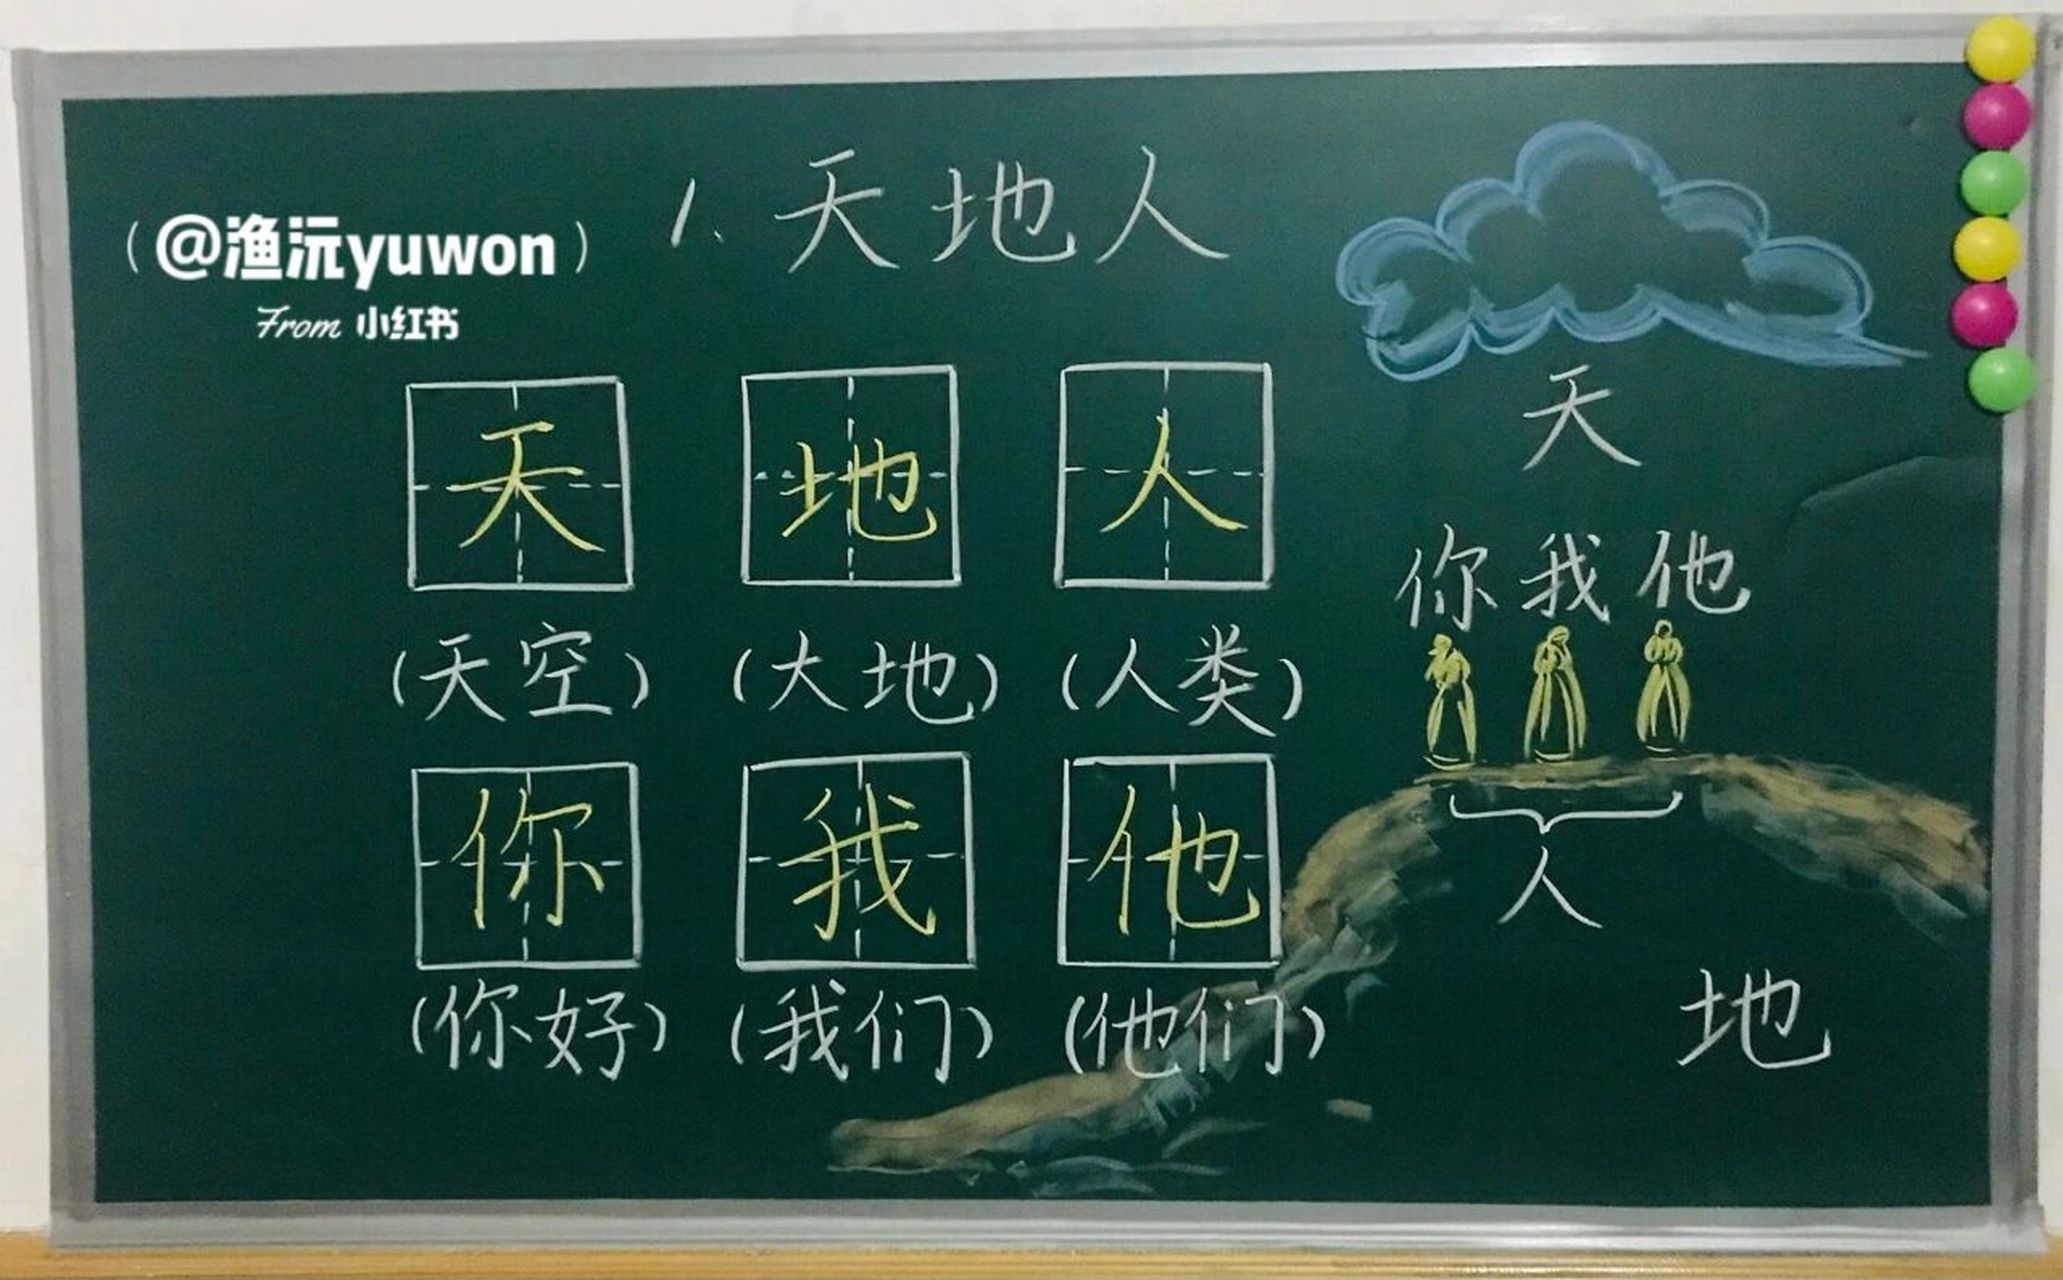 1、天地人
(@渔沅yuwon)
From 小红书
天 地 人
(天空) (大地) (人类)
你 我 他
(你好) (我们) (他们)
天
你我他
人
地